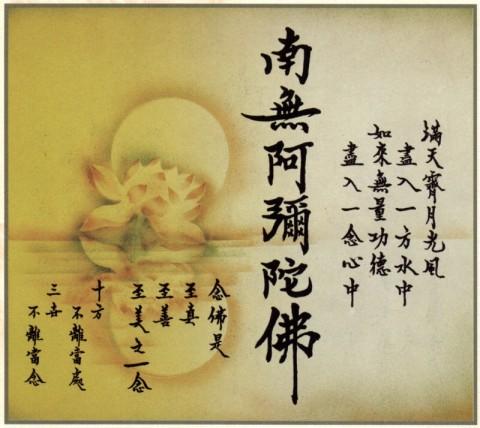 滿天霽月光風
盡入一方水中
如來無量功德
盡入一念心中
南無阿彌陀佛
念佛是
至真
至善
至美之一念
十方
不離當處
三世
不離當念